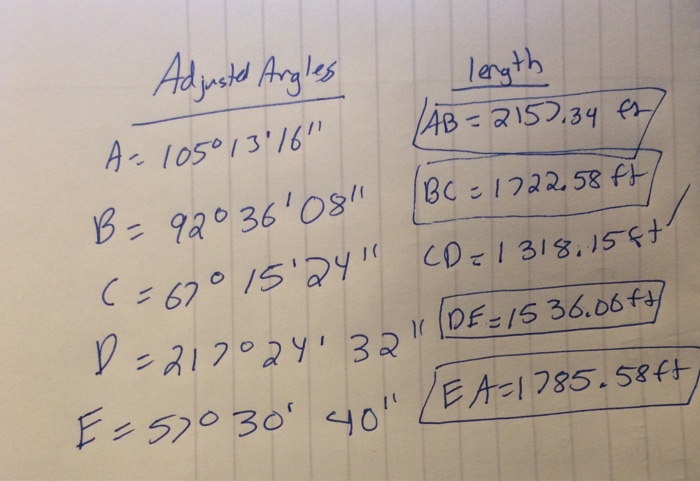 Adjusted Angles length
A = 105° 13' 16" AB = 2157.34 ft
B = 92° 36' 08" BC = 1722.58 ft
C = 67° 15' 24" CD = 1318.15 ft
D = 217° 24' 32" DE = 1536.06 ft
E = 57° 30' 40" EA = 1785.58 ft